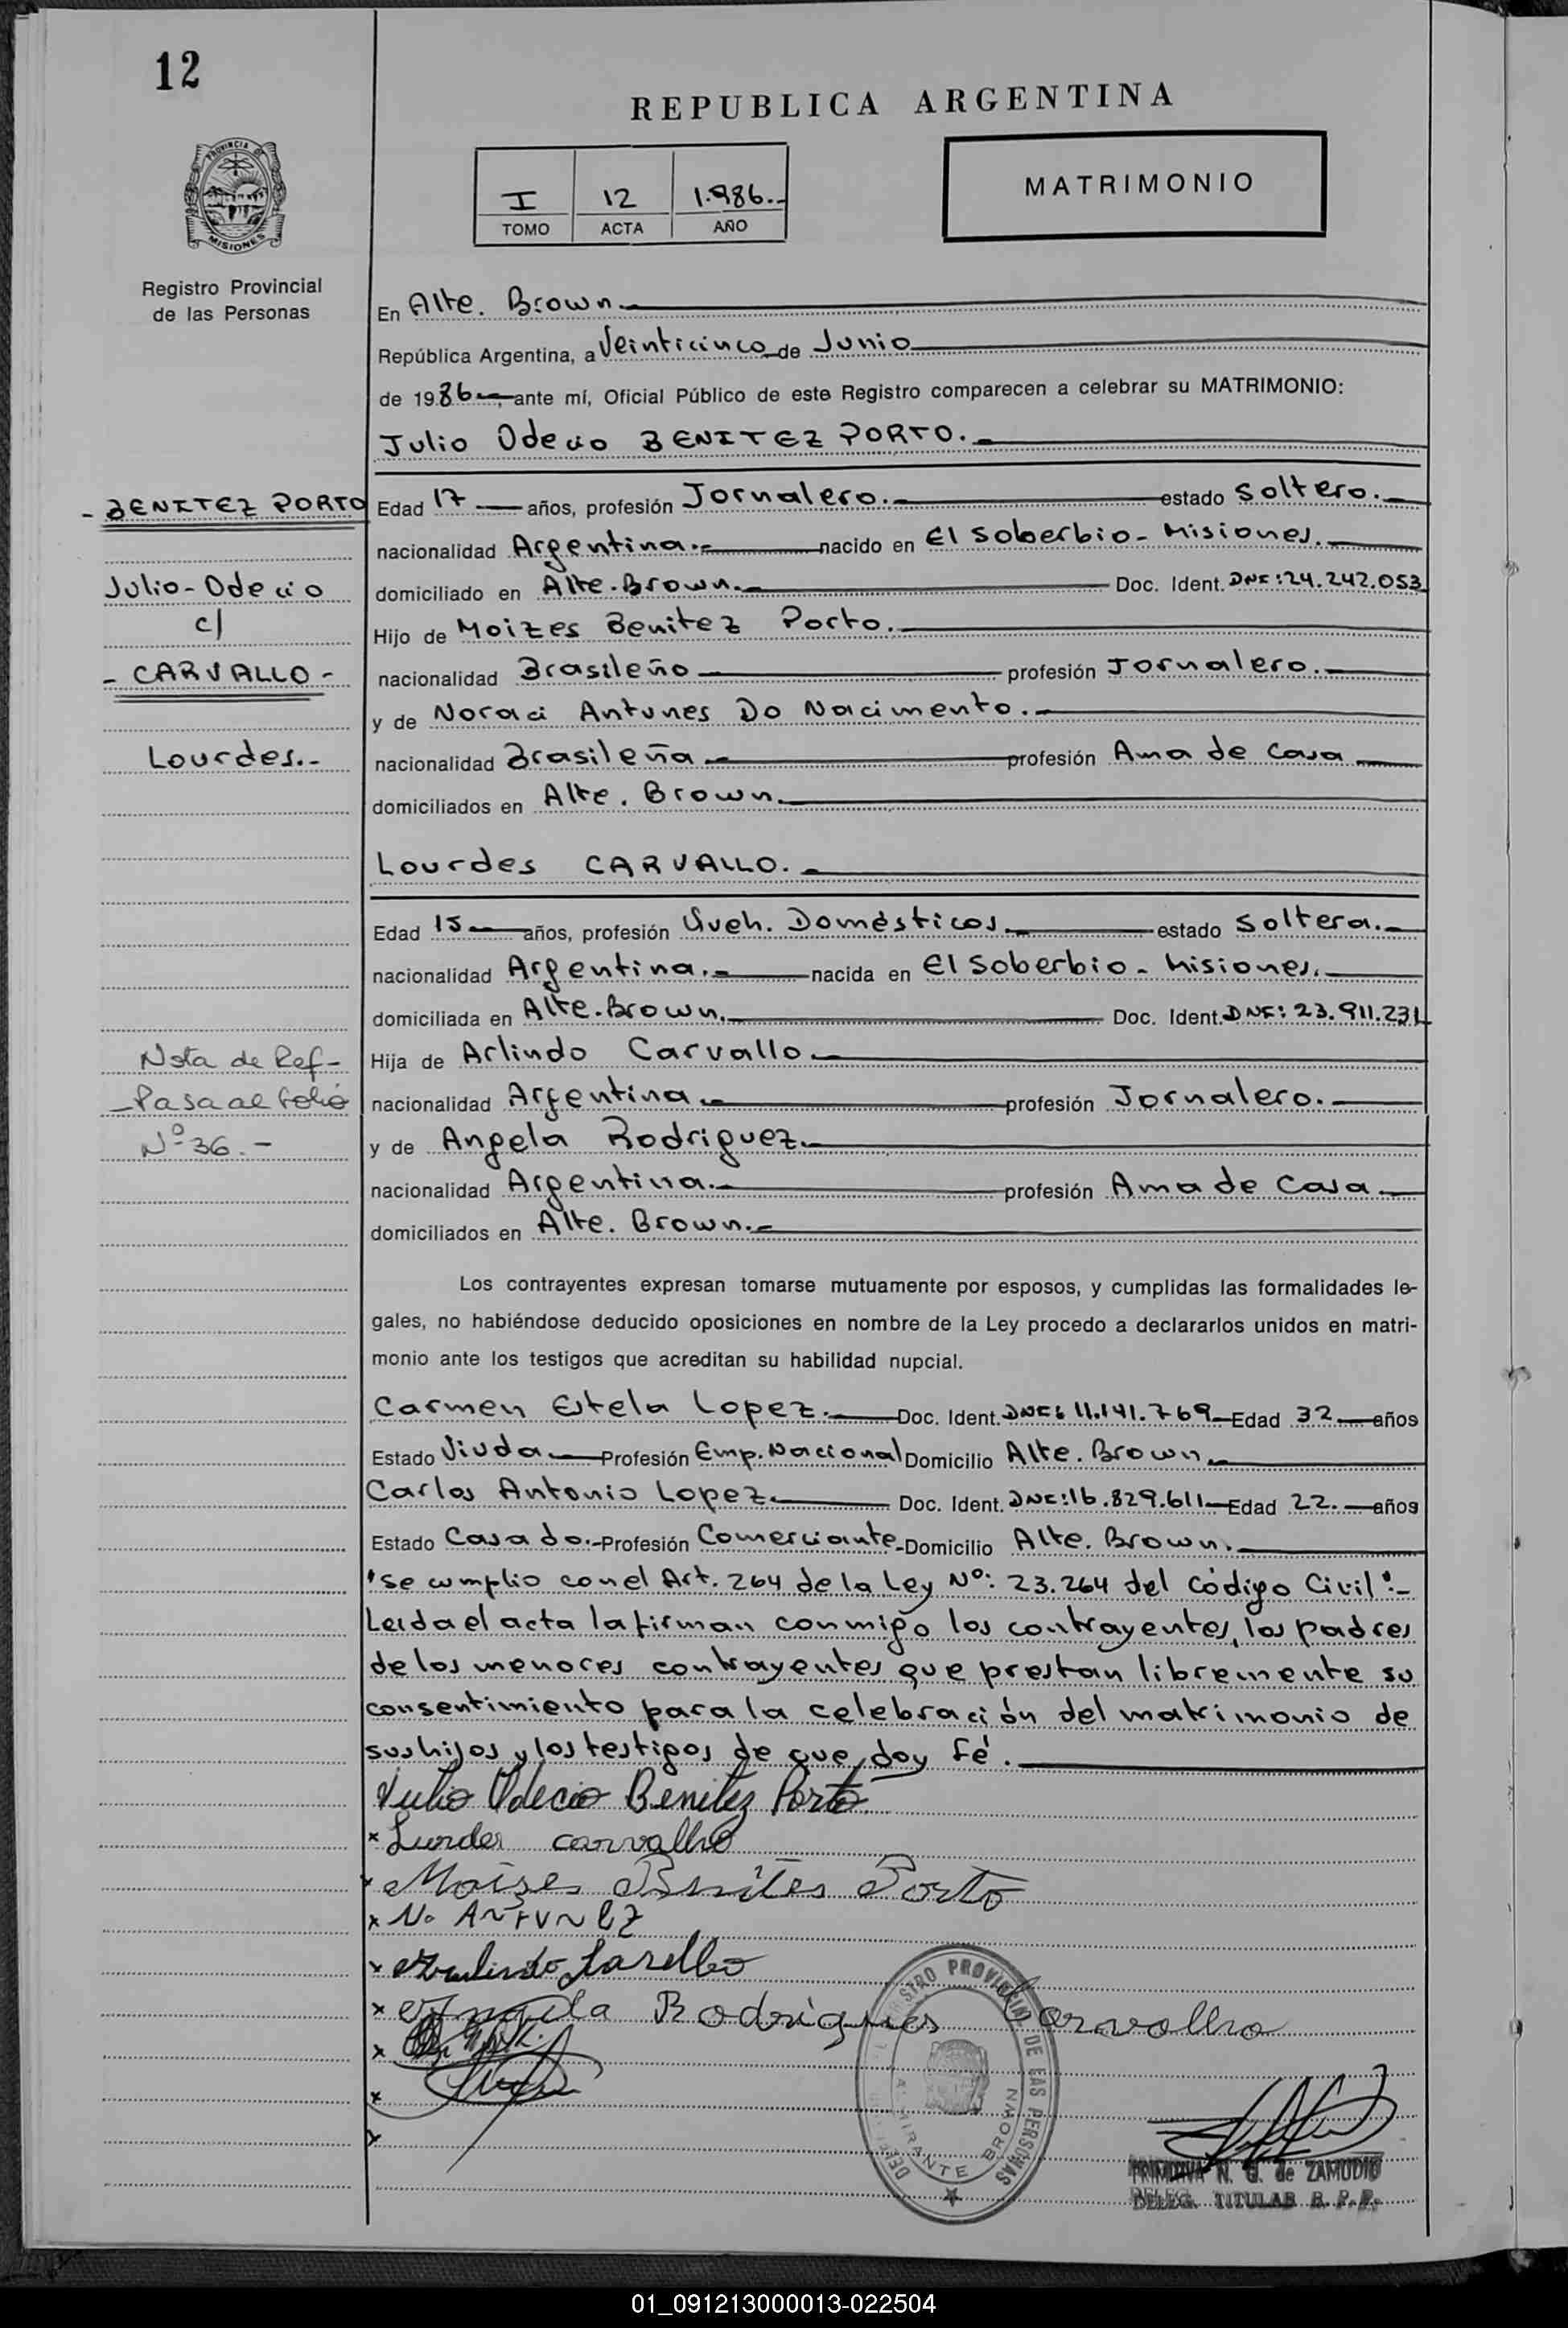 12
REPUBLICA ARGENTINA
PROVINCIA DE
MISIONES
Registro Provincial
de las Personas
I 12 1.986.-
TOMO ACTA AÑO
MATRIMONIO
En Alte. Brown.
República Argentina, a Veinticinco de Junio
de 1986, ante mí, Oficial Público de este Registro comparecen a celebrar su MATRIMONIO:
Julio Odecio BENITEZ PORTO.-
- BENITEZ PORTO
Julio-Odecio
c/
- CARVALLO -
Lourdes.-
Edad 17 años, profesión Jornalero.- estado Soltero.-
nacionalidad Argentina.- nacido en El Soberbio - Misiones.
domiciliado en Alte. Brown.- Doc. Ident. DNI: 24.242.053
Hijo de Moizes Benitez Porto.
nacionalidad Brasileño profesión Jornalero.-
y de Noraci Antunes Do Nacimento.-
nacionalidad Brasileña profesión Ama de Casa
domiciliados en Alte. Brown.
Lourdes CARVALLO.-
Edad 15 años, profesión Queh. Domésticos estado Soltera.-
nacionalidad Argentina.- nacida en El Soberbio - Misiones.
domiciliada en Alte. Brown. Doc. Ident. DNI: 23.911.231
Hija de Arlindo Carvallo
nacionalidad Argentina profesión Jornalero.
y de Angela Rodriguez.
nacionalidad Argentina.- profesión Ama de Casa
domiciliados en Alte. Brown.-
Nota de Ref-
-Pasa al folio
Nº 36.-
Los contrayentes expresan tomarse mutuamente por esposos, y cumplidas las formalidades le-
gales, no habiéndose deducido oposiciones en nombre de la Ley procedo a declararlos unidos en matri-
monio ante los testigos que acreditan su habilidad nupcial.
Carmen Estela Lopez.- Doc. Ident. DNI: 11.141.769 Edad 32 años
Estado Viuda Profesión Emp. Nacional Domicilio Alte. Brown
Carlos Antonio Lopez Doc. Ident. DNI: 16.829.611 Edad 22. años
Estado Casado.- Profesión Comerciante Domicilio Alte. Brown.
"Se cumplio con el Art. 264 de la Ley Nº: 23.264 del Código Civil".-
Leida el acta la firman conmigo los contrayentes, los padres
de los menores contrayentes que prestan libremente su
consentimiento para la celebración del matrimonio de
sus hijos y los testigos de que doy fé.
Julio Odecio Benitez Porto
x Lurdes carvalho
x Moises Benites Porto
x No ANTUNEZ
x
x Angela Rodrigues Carvalho
x
x
x
REGISTRO PROVINCIAL DE LAS PERSONAS
ALMIRANTE BROWN
PRIMITIVA N. G. de ZAMUDIO
DELEG. TITULAR R. P. P.
01_091213000013-022504